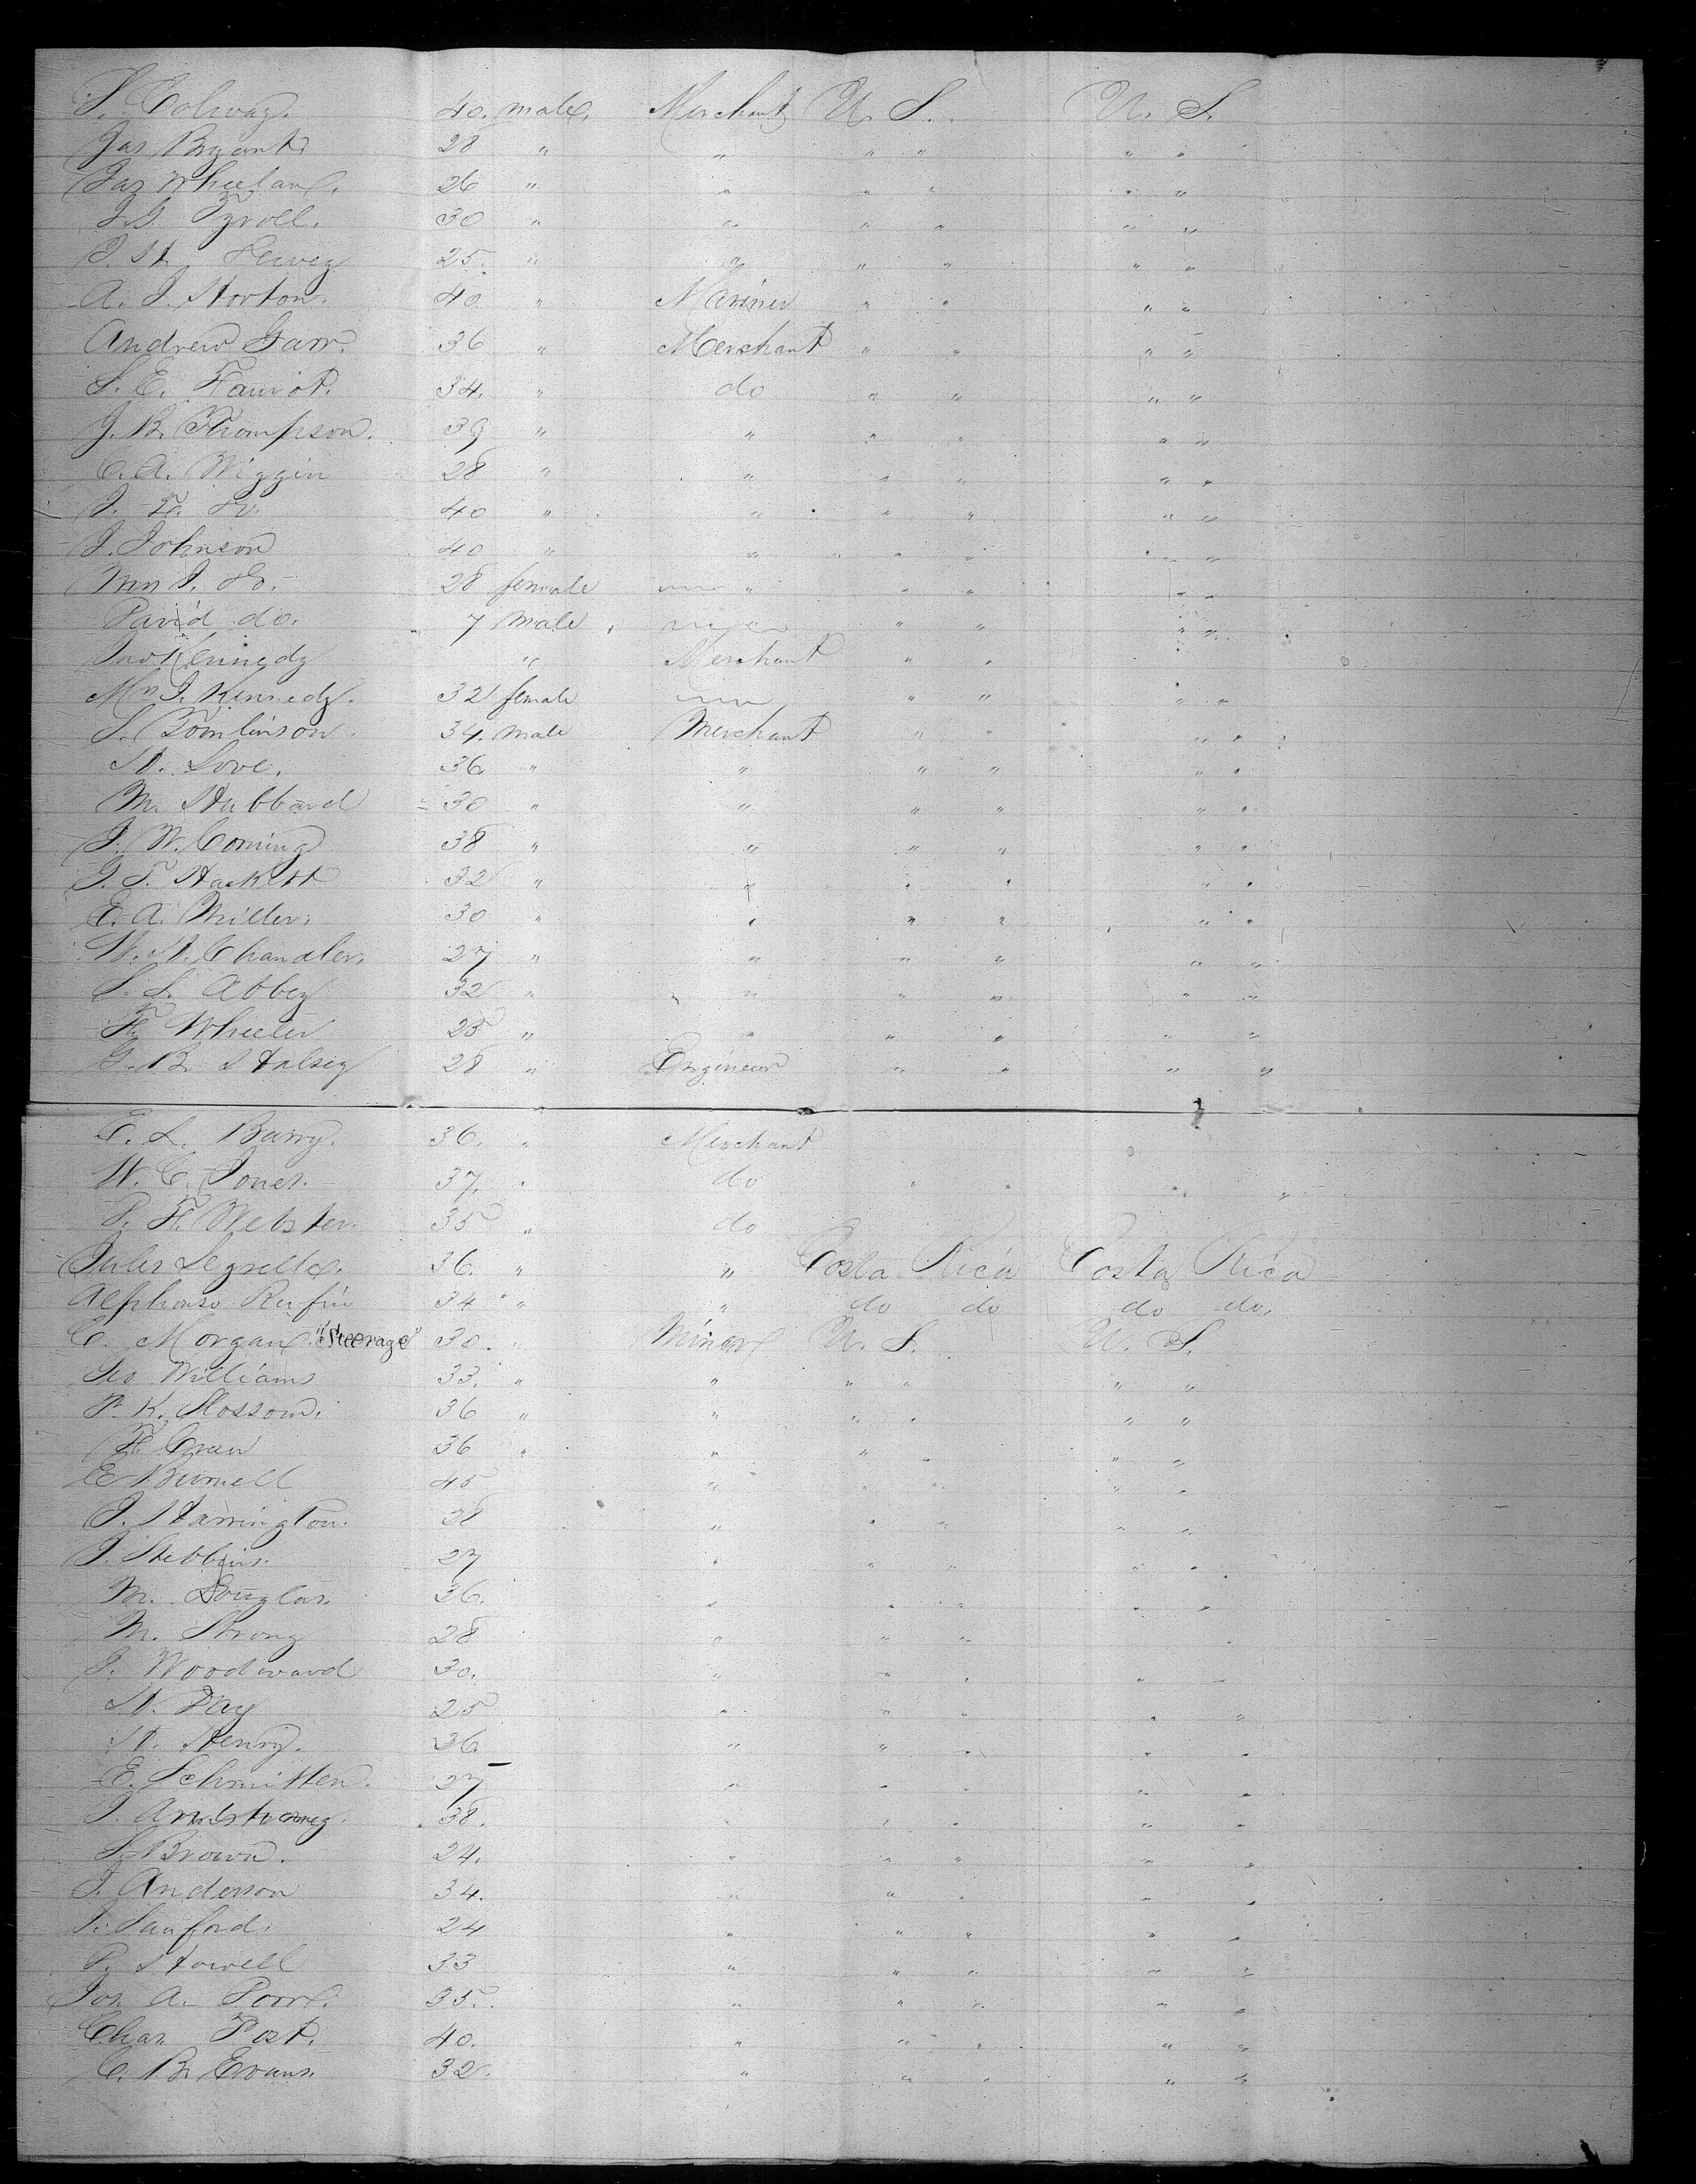 40. male, Merchant U. S. U. S.
Jas Bryant. 28 " " " " " "
Jas Wheeland. 26 " " " " " "
30 " " " " " "
25. " " " " " "
A. J. Horton. 40. " Mariner " " " "
Andrew Garr. 36 " Merchant " " " "
S. E. 34. " do " " " "
J. B. Thompson. 39 " " " " " "
C. A. Wiggin 28 " " " " " "
40 " " " " " "
J. Johnson 40 " " " " " "
28 female " " " " "
David do. 7 male " " " "
Jno Kennedy " Merchant " "
Mrs J. Kennedy. 32 female " " " "
S. Tomlinson. 34. male Merchant " " " "
H. Love. 36. " " " " " "
M. Hubbard 30 " " " " " "
J. W. Coming 38 " " " " " "
J. T. Hackett 32 " " " " " "
E. A. Miller. 30 " " " " " "
W. H. Chandler. 27 " " " " " "
S. S. Abbey 32 " " " " " "
F. Wheeler 25 " " " " " "
G. B. Halsey 28 " Engineer " " " "
E. L. Barry. 36. " Merchant
W. C. Jones. 37. " do " " " "
P. F. Webster. 35 " do
Jules 36. " " Costa Rica Costa Rica
Alphonso Rufin 34 " " do do do do.
C. Morgan. "Steerage" 30. " Miner U. S. U. S.
Geo Williams 33. " " " " " "
P. K. Slossom. 36 " " " " " "
F. Crau 36 " " " " " "
E Burnell 45 " " " " "
J. Harrington. 28 " " " " "
J. Stebbins. 27 " " " " "
M. Douglas. 36. " " " " "
M. Strong 28 " " " "
J. Woodward 30. " " " " "
H. Day 25 " " " " "
H. Henry. 36. " " " " "
E. Schmitten. 27 " " " " "
J. Armstrong. 38. " " " " "
S. Brown. 24. " " " " "
J. Anderson 34. " " " " "
J. Sanford. 24 " " " " "
P. Howell 33 " " " " "
Jos. A. 35. " " " " "
Chas Post. 40. " " " " "
C. B. Evans. 32. " " " " "